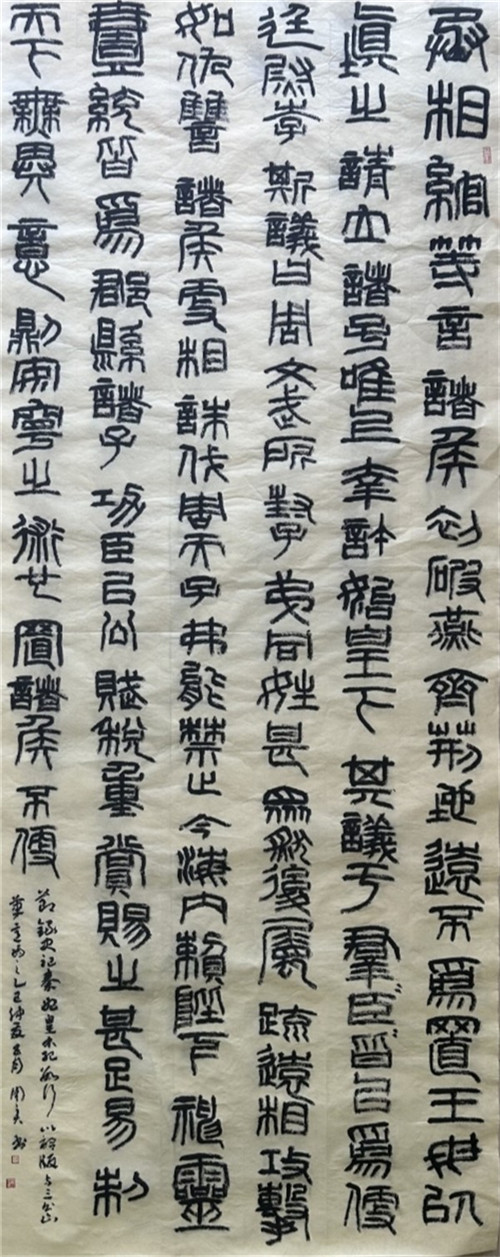 丞相綰等言諸侯初破燕齊荊地遠不爲置王毋以
填之請立諸子唯上幸許始皇下其議于羣臣皆以爲便
廷尉李斯議曰周文武所封子弟同姓甚眾然後屬疏遠相攻擊
如仇讎諸侯更相誅伐周天子弗能禁止今海內賴陛下神靈
壹統皆爲郡縣諸子功臣以公賦稅重賞賜之甚足易制
天下無異意則安寧之術也置諸侯不便
節錄史記秦始皇本紀數行以詔版
意為之乙巳仲夏